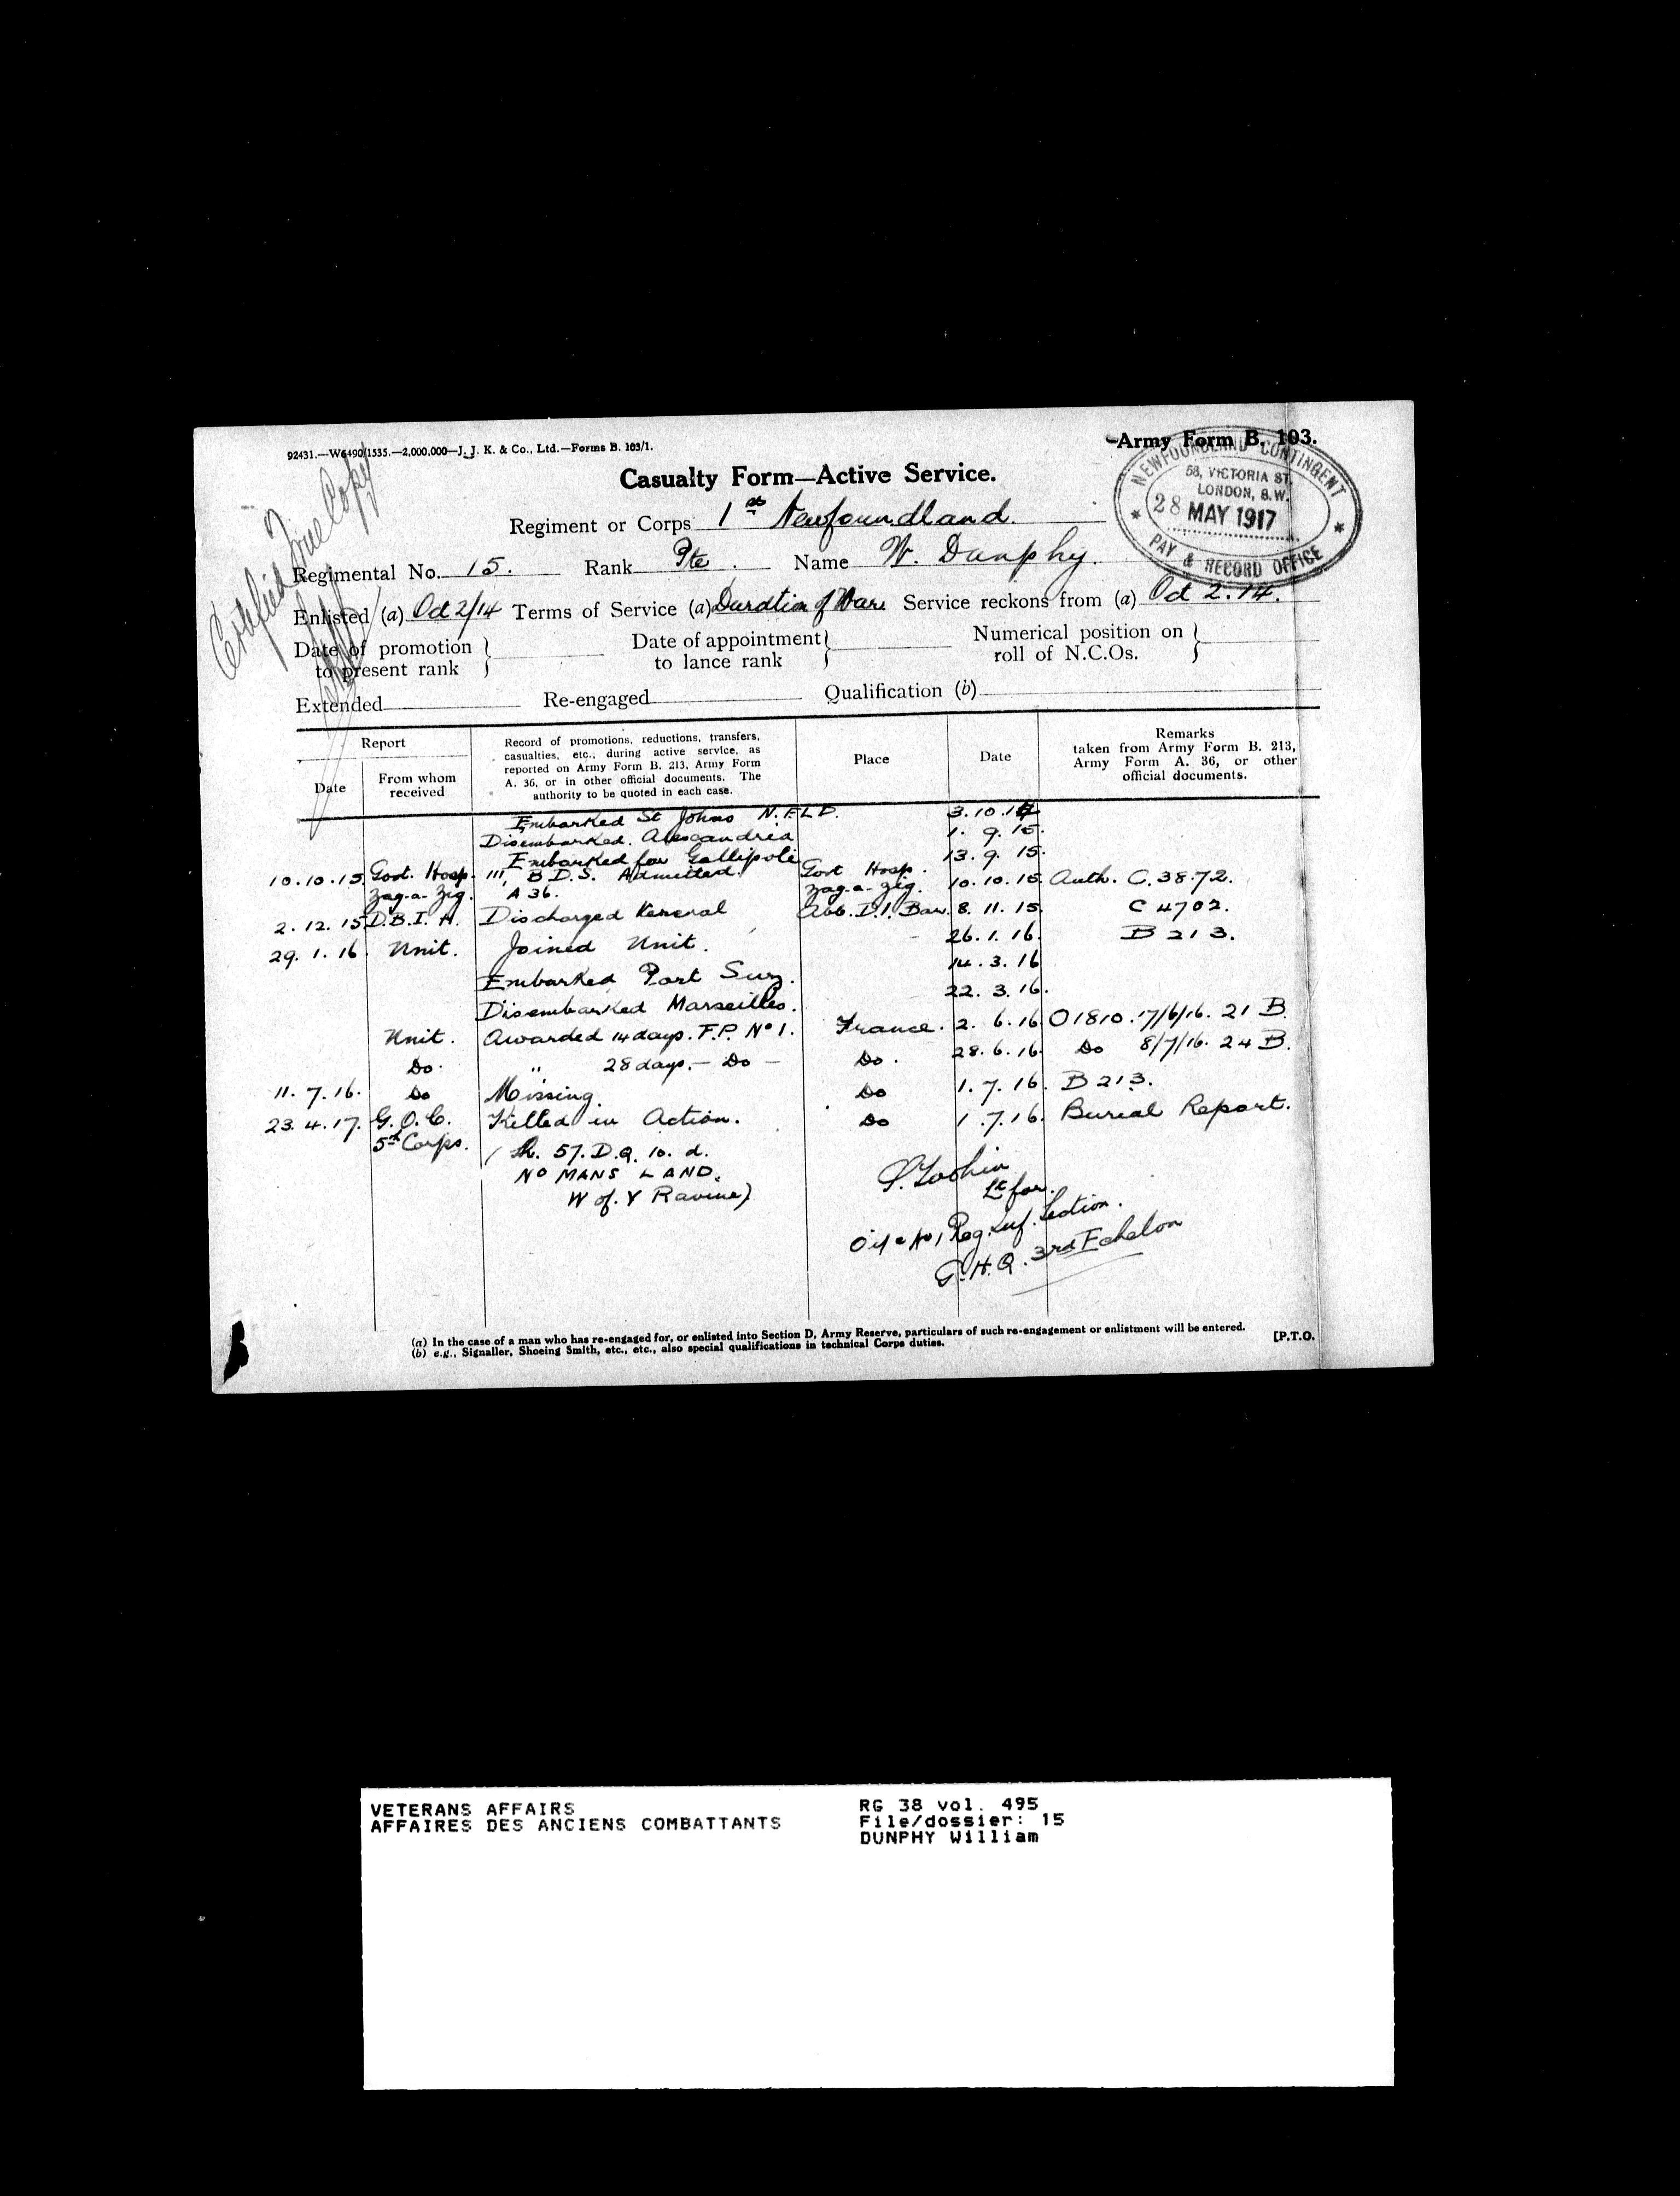 92431.—W6490/1535.—2,000,000—J. J. K. & Co., Ltd.—Forms B. 103/1.
Army Form B. 103.
Certified True Copy
Casualty Form—Active Service.
NEWFOUNDLAND CONTINGENT
58, VICTORIA ST.
LONDON, S.W.
28 MAY 1917
PAY & RECORD OFFICE
Regiment or Corps 1st Newfoundland.
Regimental No. 15. Rank Pte. Name W. Dunphy.
Enlisted (a) Oct 2/14 Terms of Service (a) Duration of War Service reckons from (a) Oct 2.14.
Date of promotion to present rank } Date of appointment to lance rank } Numerical position on roll of N.C.Os. }
Extended Re-engaged Qualification (b)
Report
Date
From whom received
Record of promotions, reductions, transfers, casualties, etc., during active service, as reported on Army Form B. 213, Army Form A. 36, or in other official documents. The authority to be quoted in each case.
Place
Date
Remarks taken from Army Form B. 213, Army Form A. 36, or other official documents.
Embarked St Johns N.F.L.D. 3.10.14
Disembarked. Alexandria 1. 9. 15.
Embarked for Gallipoli 13. 9. 15.
10.10.15 Govt. Hosp. Zag-a-Zig. B.D.S. Admitted. A 36. Govt Hosp. Zag-a-Zig. 10.10.15. Auth. C.3872.
2. 12. 15 D.B.I.A. Discharged 8. 11. 15. C 4702.
29. 1. 16. Unit. Joined Unit. 26. 1. 16. B 213.
Embarked Port Suz. 14. 3. 16
Disembarked Marseilles. 22. 3. 16.
Unit. Awarded 14 days. F.P. No 1. France. 2. 6. 16 O1810. 17/6/16. 21 B.
Do. " 28 days. — Do — Do. 28. 6. 16. Do 8/7/16. 24 B.
11. 7. 16. Do Missing. Do 1. 7. 16. B 213.
23. 4. 17. G.O.C. 5th Corps. Killed in Action. Do 1. 7. 16. Burial Report.
(Sh. 57. D.Q. 10. d.
NO MANS LAND.
W of. Y Ravine)
Lt for.
O i/c No 1 Reg. Inf. Section.
G.H.Q. 3rd Echelon
(a) In the case of a man who has re-engaged for, or enlisted into Section D, Army Reserve, particulars of such re-engagement or enlistment will be entered.
(b) e.g., Signaller, Shoeing Smith, etc., etc., also special qualifications in technical Corps duties.
[P.T.O.
VETERANS AFFAIRS
AFFAIRES DES ANCIENS COMBATTANTS
RG 38 vol. 495
File/dossier: 15
DUNPHY William